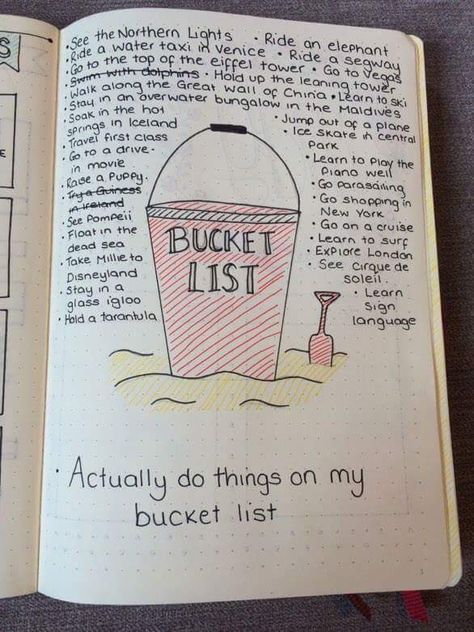 S
E
• See the Northern Lights • Ride an elephant
• Ride a water taxi in Venice • Ride a segway
• Go to the top of the eiffel tower • Go to Vegas
• Swim with dolphins • Hold up the leaning tower
• Walk along the Great Wall of China • Learn to ski
• Stay in an overwater bungalow in the Maldives
• Soak in the hot
springs in Iceland
• Travel first class
• Go to a drive-
in movie
• Raise a Puppy.
• Try a Guiness
in Ireland
• See Pompeii
• Float in the
dead sea
• Take Millie to
Disneyland
• Stay in a
glass igloo
• Hold a tarantula
• Jump out of a plane
• Ice skate in central
Park
• Learn to Play the
Piano well
• Go parasailing
• Go shopping in
New York
• Go on a cruise
• Learn to surf
• Explore London
• See cirque de
soleil.
• Learn
Sign
language
BUCKET
LIST
• Actually do things on my
bucket list